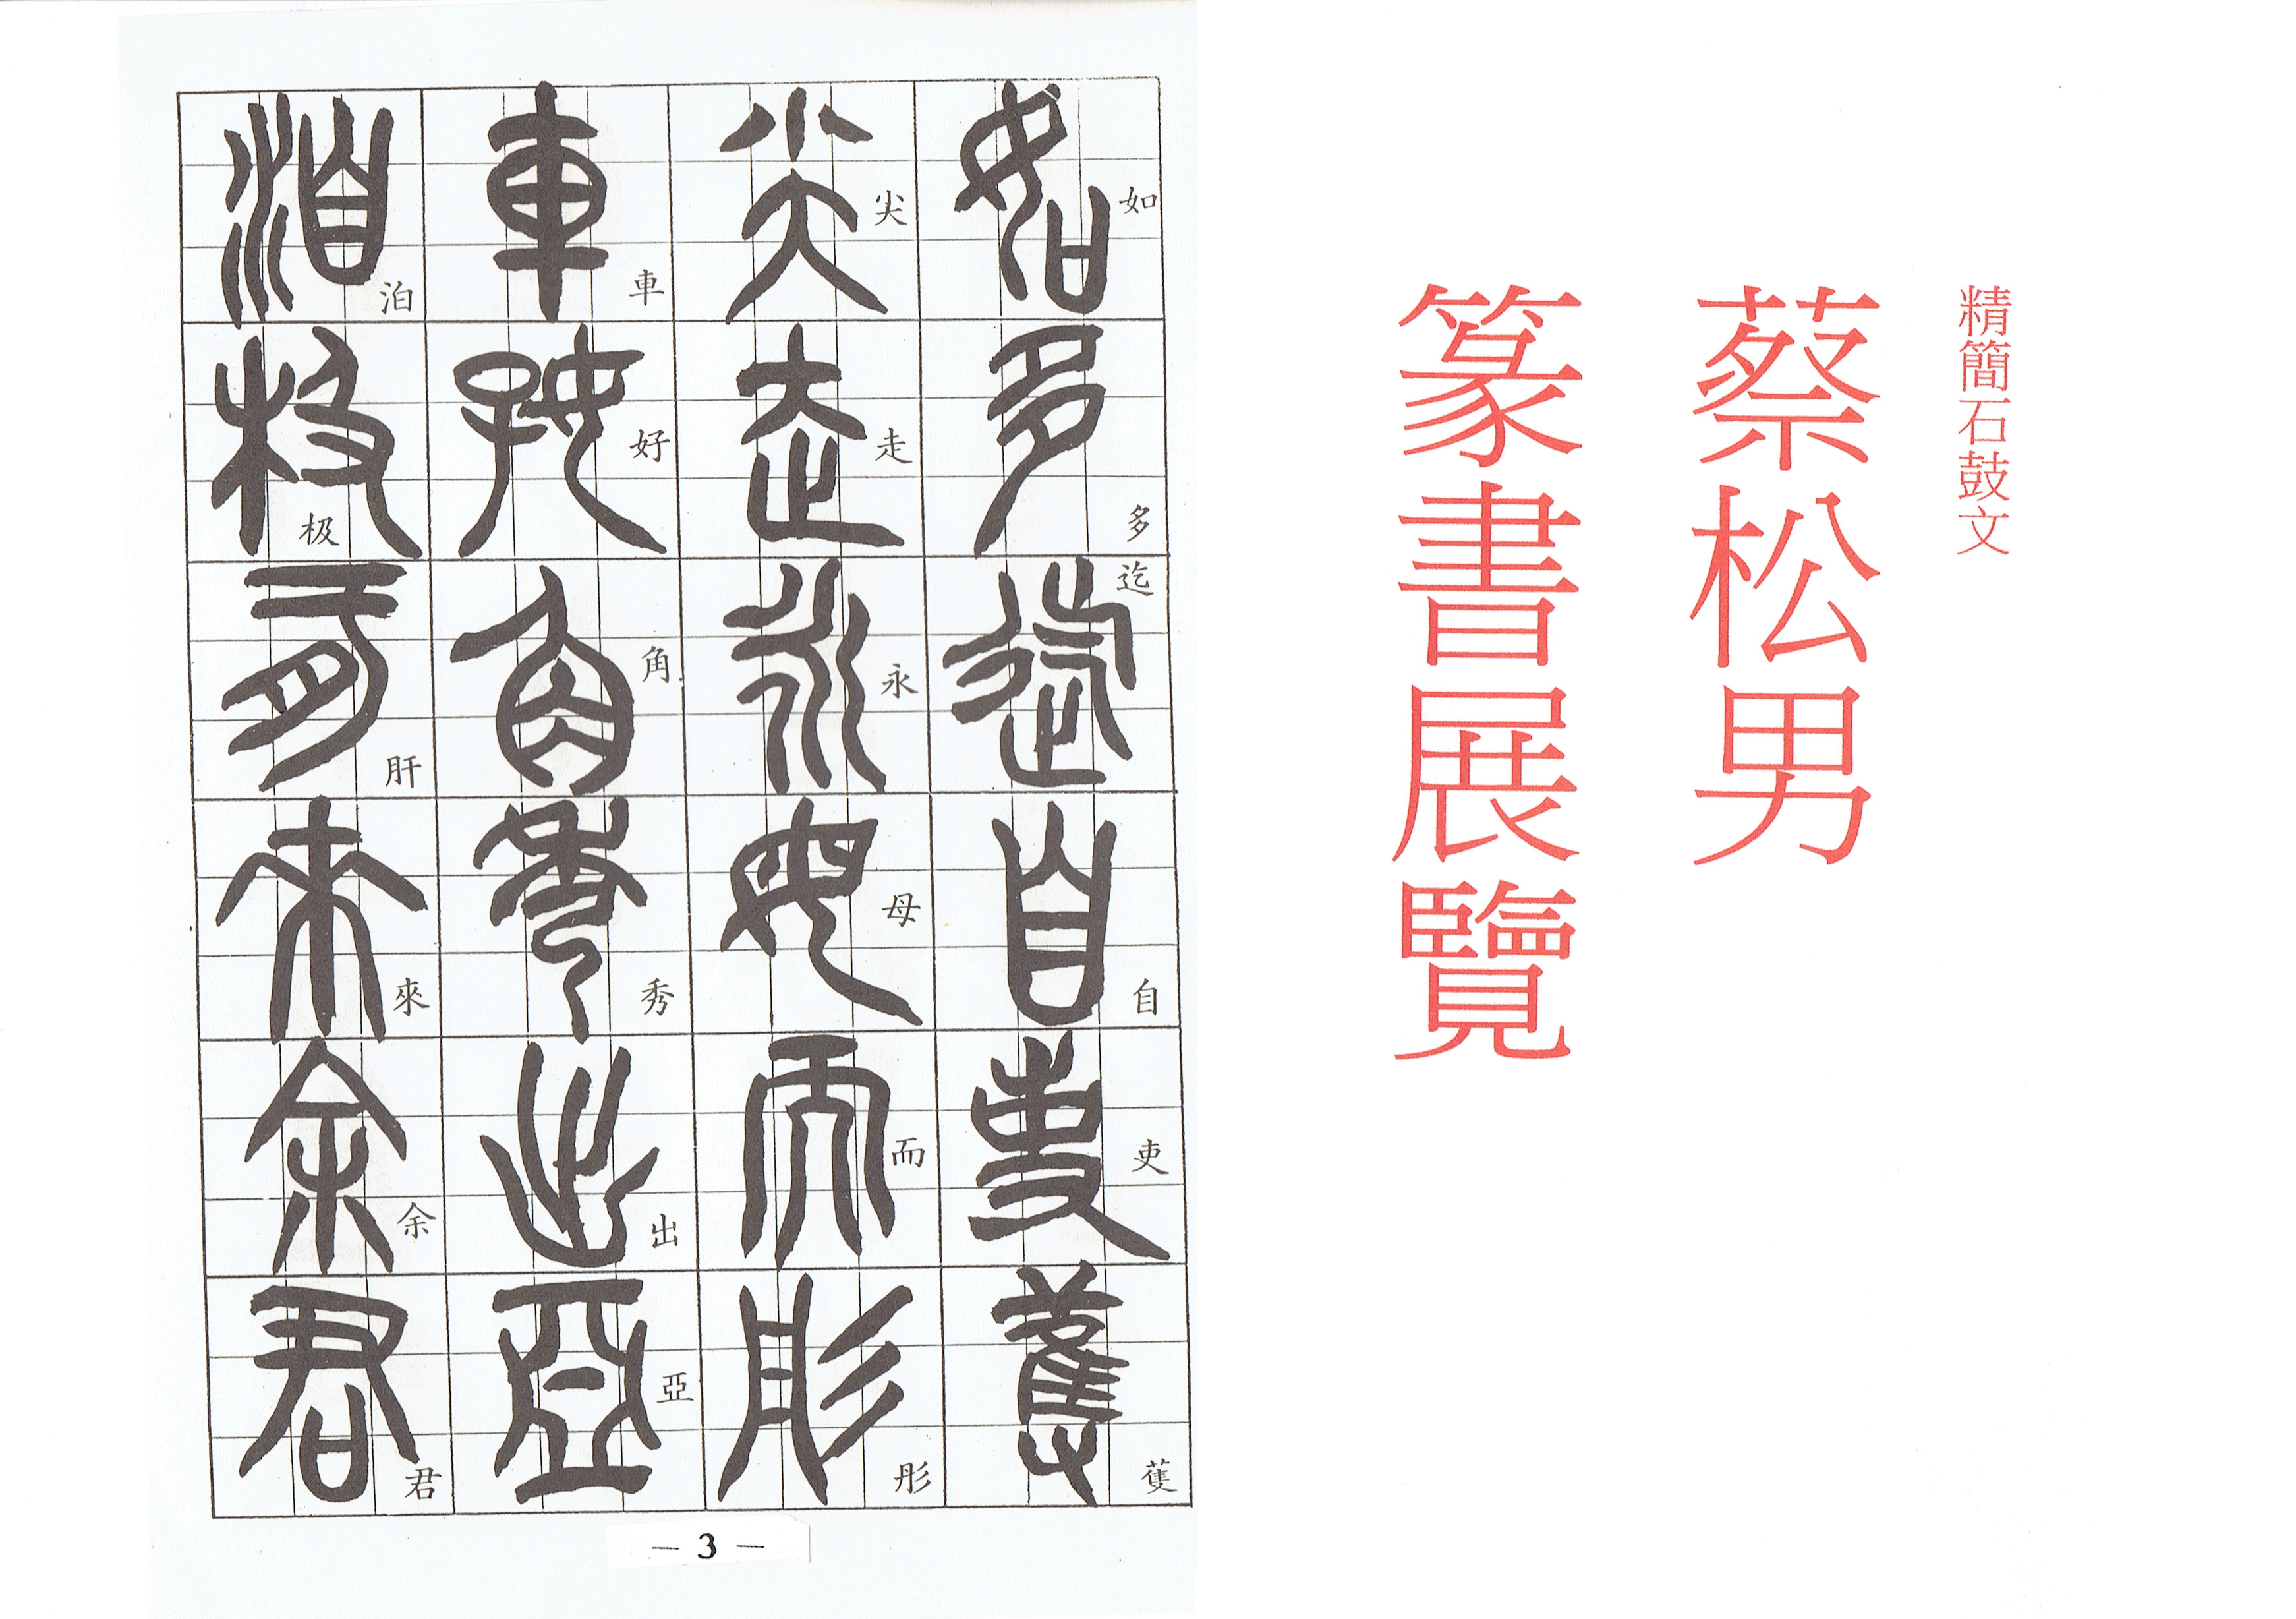 精簡石鼓文
蔡松男
篆書展覽
如多迄自吏蒦
尖走永母而彤
車好角秀出亞
泊极肝來余君
— 3 —